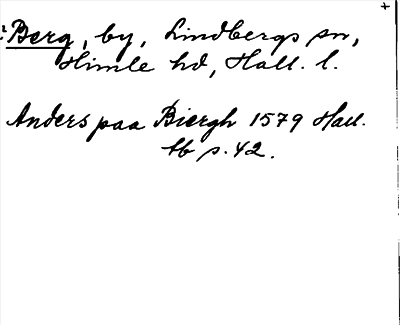 Berg, by, Lindbergs sn,
Himle hd, Hall. l.
Anders paa Biergh 1579 Hall.
tb s. 42.